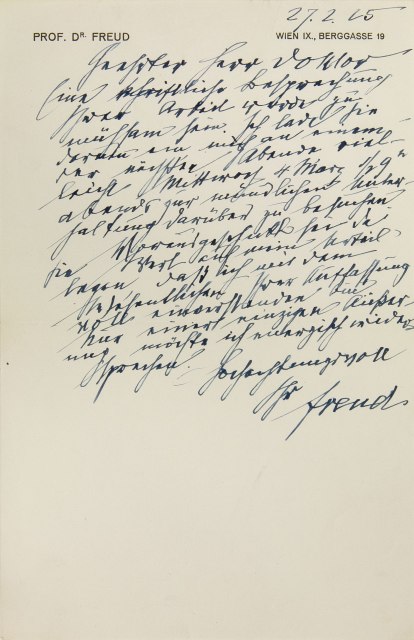 27.2.25
PROF. DR. FREUD
WIEN IX., BERGGASSE 19
Geehrter Herr Doktor
Eine schriftliche Besprechung
Ihrer Arbeit würde zu
mühsam sein. Ich lade Sie
darum ein mich an einem
der nächsten Abende viel-
leicht Mittwoch 4 März 1/2 9h
abends zur mündlichen Unter-
haltung darüber zu besuchen
Vorausgeschickt sei da
Sie Wert auf mein Urteil
legen daß ich mit dem
Wesentlichen Ihrer Auffassung
voll einverstanden bin
Nur einer einzigen Äußer-
ung möchte ich energisch wieder
sprechen.
Hochachtungsvoll
Ihr
Freud